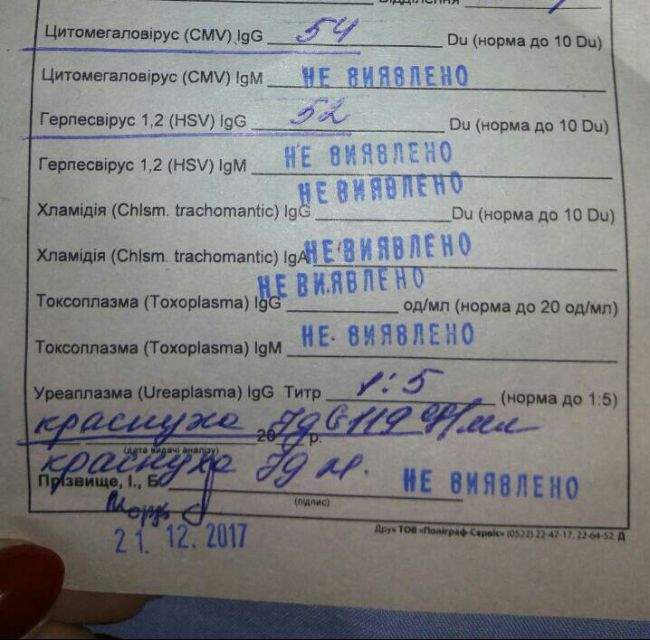 Відділення
Цитомегаловірус (CMV) IgG 54 Du (норма до 10 Du)
Цитомегаловірус (CMV) IgM НЕ ВИЯВЛЕНО
Герпесвірус 1,2 (HSV) IgG 52 Du (норма до 10 Du)
Герпесвірус 1,2 (HSV) IgM НЕ ВИЯВЛЕНО
НЕ ВИЯВЛЕНО
Хламідія (Chlsm. trachomantic) IgG Du (норма до 10 Du)
Хламідія (Chlsm. trachomantic) IgA НЕ ВИЯВЛЕНО
НЕ ВИЯВЛЕНО
Токсоплазма (Toxoplasma) IgG од/мл (норма до 20 од/мл)
Токсоплазма (Toxoplasma) IgM НЕ ВИЯВЛЕНО
Уреаплазма (Ureaplasma) IgG Титр 1:5 (норма до 1:5)
краснуха Jg G 119 ед/мл
20 р.
(дата видачі аналізу)
краснуха Jg М.
Прізвище, І., Б НЕ ВИЯВЛЕНО
(підпис)
21. 12. 2017
Друк ТОВ «Поліграф-Сервіс» (0522) 22-47-17, 22-64-52. Д